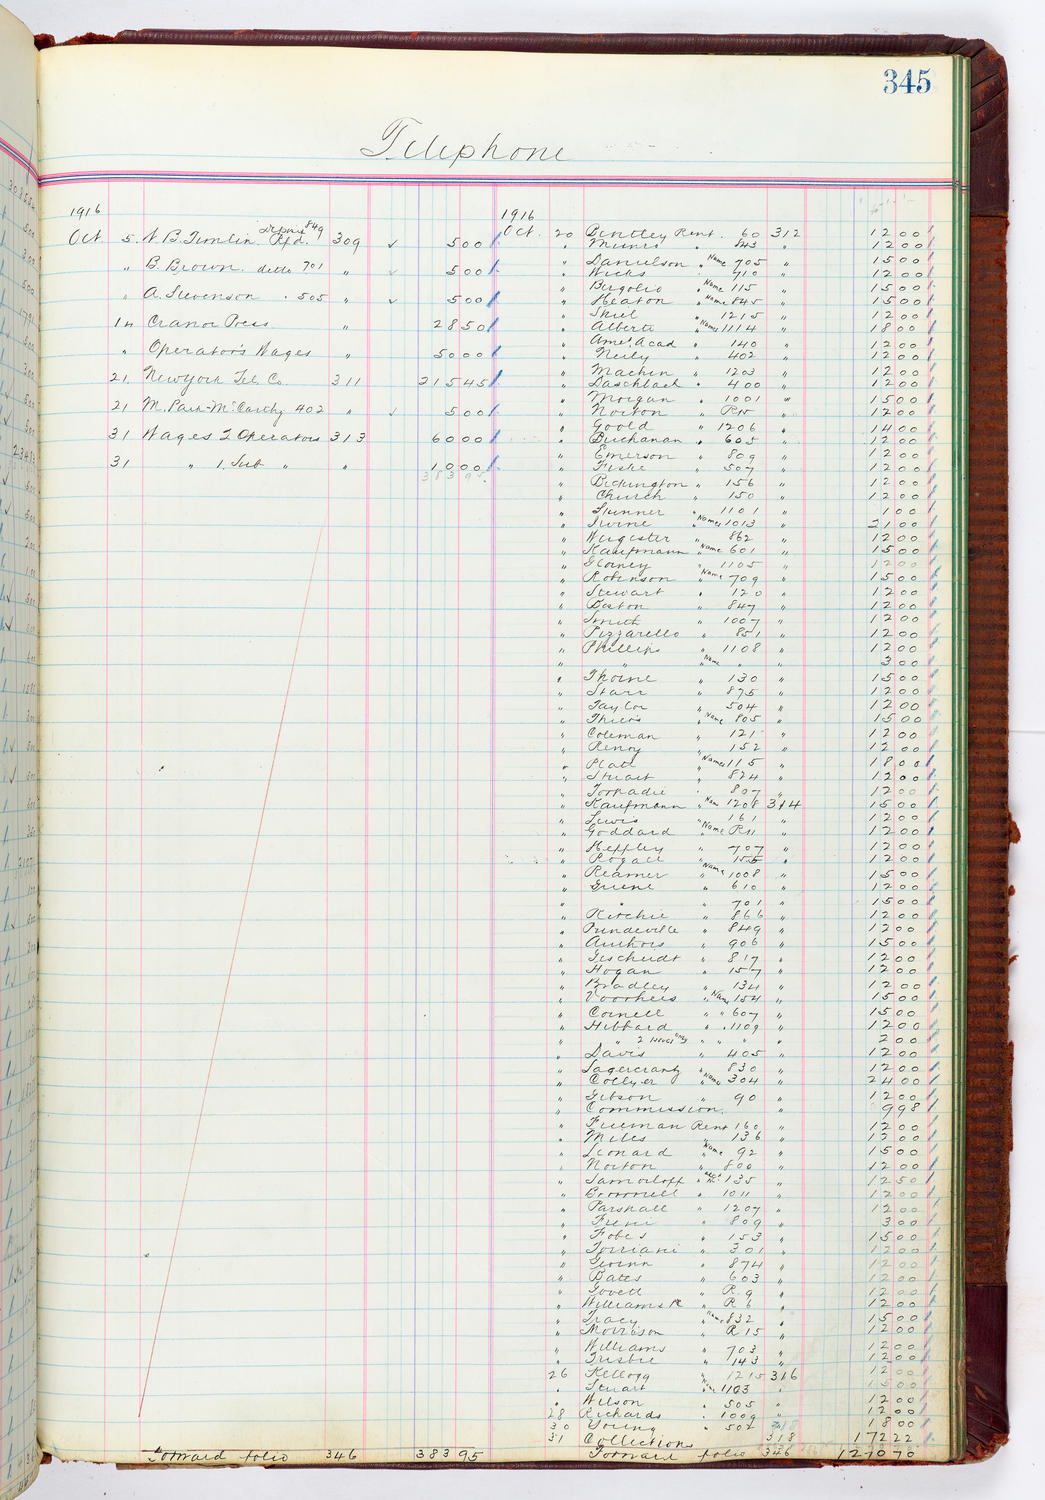 345
Telephone
1916
Oct. 5. N. B. Tomlin Rfd. 849 309 ✓ 5 00
" B. Brown. ditto 701 " ✓ 5 00
" A. Stevenson . 505 " ✓ 5 00
14 Cranor Press " 28 50
" Operator's Wages " 50 00
21. New York Tel. Co. 311 215 45
21 M. Park-McCarthy 402 " ✓ 5 00
31 Wages 2 Operators 313 60 00
31 " 1. Sub " " 10 00
383 95
Forward folio 346 383 95
1916
Oct. 20 Bentley Rent. 60 312 12 00
" Munro " 843 " 12 00
" Danielson " Name 705 " 15 00
" Wicks " 910 " 12 00
" Bergolio " Name 115 " 15 00
" Heaton " Name 845 " 15 00
" Skiel " 1215 " 12 00
" Alberti " Names 1114 " 18 00
" Amer. Acad " 140 " 12 00
" Neily " 402 " 12 00
" Machin " 1203 " 12 00
" Daschbach " 400 " 12 00
" Morgan " 1001 " 15 00
" Norton " RW " 12 00
" Goold " 1206 " 14 00
" Buchanan " 605 " 12 00
" Emerson " 809 " 12 00
" Fiske " 507 " 12 00
" Bickington " 156 " 12 00
" Church " 150 " 12 00
" Skinner " 1101 " 1 00
" Irvine " Names 1013 " 21 00
" Wugister " 862 " 12 00
" Kaufmann " Name 601 " 15 00
" Gloiney " 1105 " 12 00
" Robinson " Name 709 " 15 00
" Stewart " 120 " 12 00
" Boston " 847 " 12 00
" Smith " 1007 " 12 00
" Pizzarello " 851 " 12 00
" Phillips " 1108 " 12 00
" " " Name " " 3 00
" Thorne " 130 " 15 00
" Starr " 875 " 12 00
" Taylor " 504 " 12 00
" Thiers " Name 805 " 15 00
" Coleman " 121 " 12 00
" Renoy " 152 " 12 00
" Platt " Names 115 " 18 00
" Stuart " 824 " 12 00
" Torpadie " 807 " 12 00
" Kaufmann " Name 1208 314 15 00
" Lewis " 161 " 12 00
" Goddard " Name R11 " 12 00
" Heffley " 707 " 12 00
" Rogall " 155 " 12 00
" Reamer " Name 1008 " 15 00
" Greene " 610 " 12 00
" " " 701 " 15 00
" Ritchie " 866 " 12 00
" Fundeville " 849 " 12 00
" Authors " 906 " 15 00
" Geschedt " 817 " 12 00
" Hogan " 157 " 12 00
" Bradley " 134 " 12 00
" Voorhees " Name 154 " 15 00
" Cornell " " 607 " 15 00
" Hibbard " . 1109 " 12 00
" " 2 " " " 2 00
" Davis " 405 " 12 00
" Sagercrantz " 830 " 12 00
" Collyer " Names 304 " 24 00
" Gibson " 90 " 12 00
" Commission " 9 98
" Freeman Rent 160 " 12 00
" Miles " 136 " 12 00
" Leonard " Name 92 " 15 00
" Norton " 800 " 12 00
" Samoiloff " 135 " 12 50
" Brownell " 1011 " 12 00
" Parshall " 1207 " 12 00
" Freni " 809 " 3 00
" Fobes " 153 " 15 00
" Torriani " 301 " 12 00
" Gwinn " 874 " 12 00
" Bates " 603 " 12 00
" Lovell " R. 9 " 12 00
" Williams R " R 6 " 12 00
" Tracy " Name 832 " 15 00
" Morrison " R 15 " 12 00
" Williams " 703 " 12 00
" Frisbie " 143 " 12 00
26 Kellogg " 1215 316 12 00
" Stuart " Name 1103 " 15 00
" Wilson " 505 " 12 00
28 Richards " 1009 " 12 00
30 Young " 502 318 18 00
31 Collections 318 172 22
Forward folio 346 1270 70